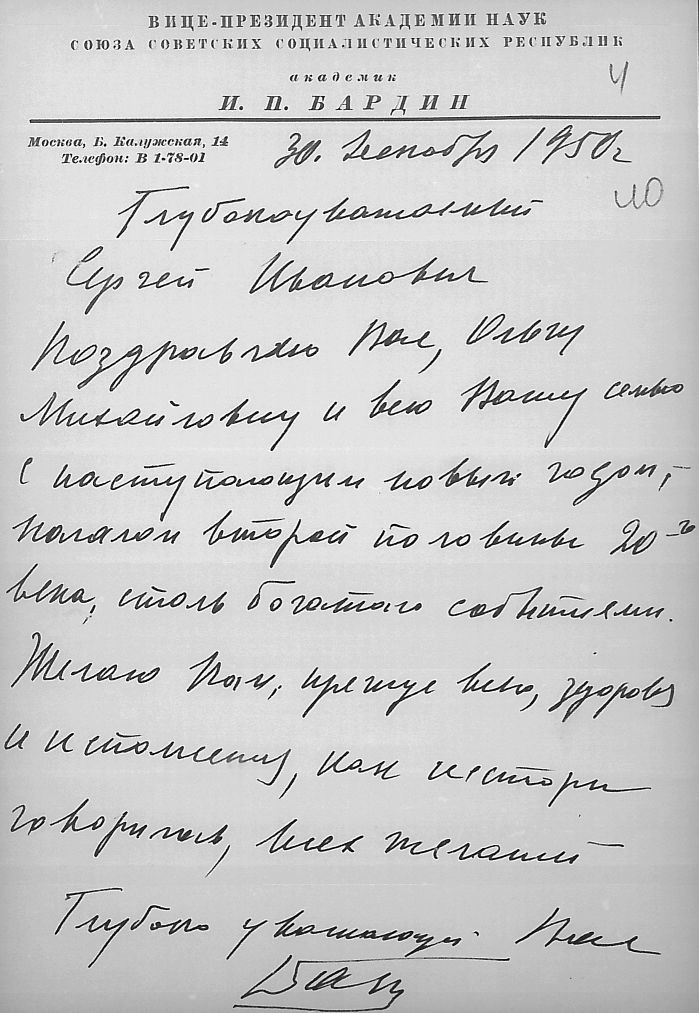 ВИЦЕ-ПРЕЗИДЕНТ АКАДЕМИИ НАУК
СОЮЗА СОВЕТСКИХ СОЦИАЛИСТИЧЕСКИХ РЕСПУБЛИК
академик
И. П. БАРДИН
Москва, Б. Калужская, 14
Телефон: В 1-78-01
30. Декабря 1950г
Глубокоуважаемый
Сергей Иванович
Поздравляю Вас, Ольгу
Михайловну и всю Вашу семью
с наступающим новым годом,-
началом второй половины 20-го
века, столь богатого событиями.
Желаю Вам, прежде всего, здоровья
и исполнения, как
говорилось, всех желаний
Глубоко уважающий Вас